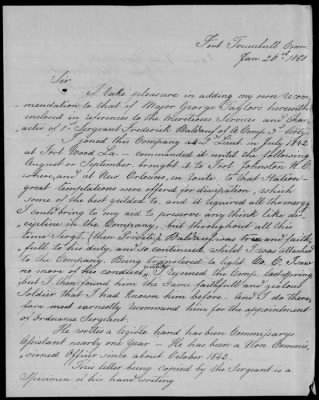 Fort Trumbull Conn
Jan 28th 1850
Sir
I take pleasure in adding my own recom
mendation to that of Major George Taylors herewith
enclosed in references to the Meritious Services and Char
acter of 1st Sergeant Frederick of A Comp. 3d Arty.
I joined this Company as 2d Lieut in July 1842
at Fort Wood La - commanded it until the following
August or September, brought it to Fort Johnston N. C
where, and at New Orleans, in route to that Station
great temptations were offered for dissipation, which
some of the best yielded to, and it required all the energy
I could bring to my aid to preserve any think like dis
cipline in the Company, but throughout all this
time Sergt (then Private) was true and faith
full to his duty, and so continued whilst I was attached
to the Company. Being transfered to light Co. C. I saw
no more of his conduct, until I rejoined the Comp. last spring
but I then found him the Same faithfull and zealous
Soldier that I had known him before. And I do there
fore most earnestly recommend him for the appointment
of Ordnance Sergeant.
He writes a legible hand has been Commissary
Assistant nearly one Year - He has been a Non Commis,
sioned Officer since about October 1842.
This letter being copied by the Sergeant is a
Specimen of his hand writing